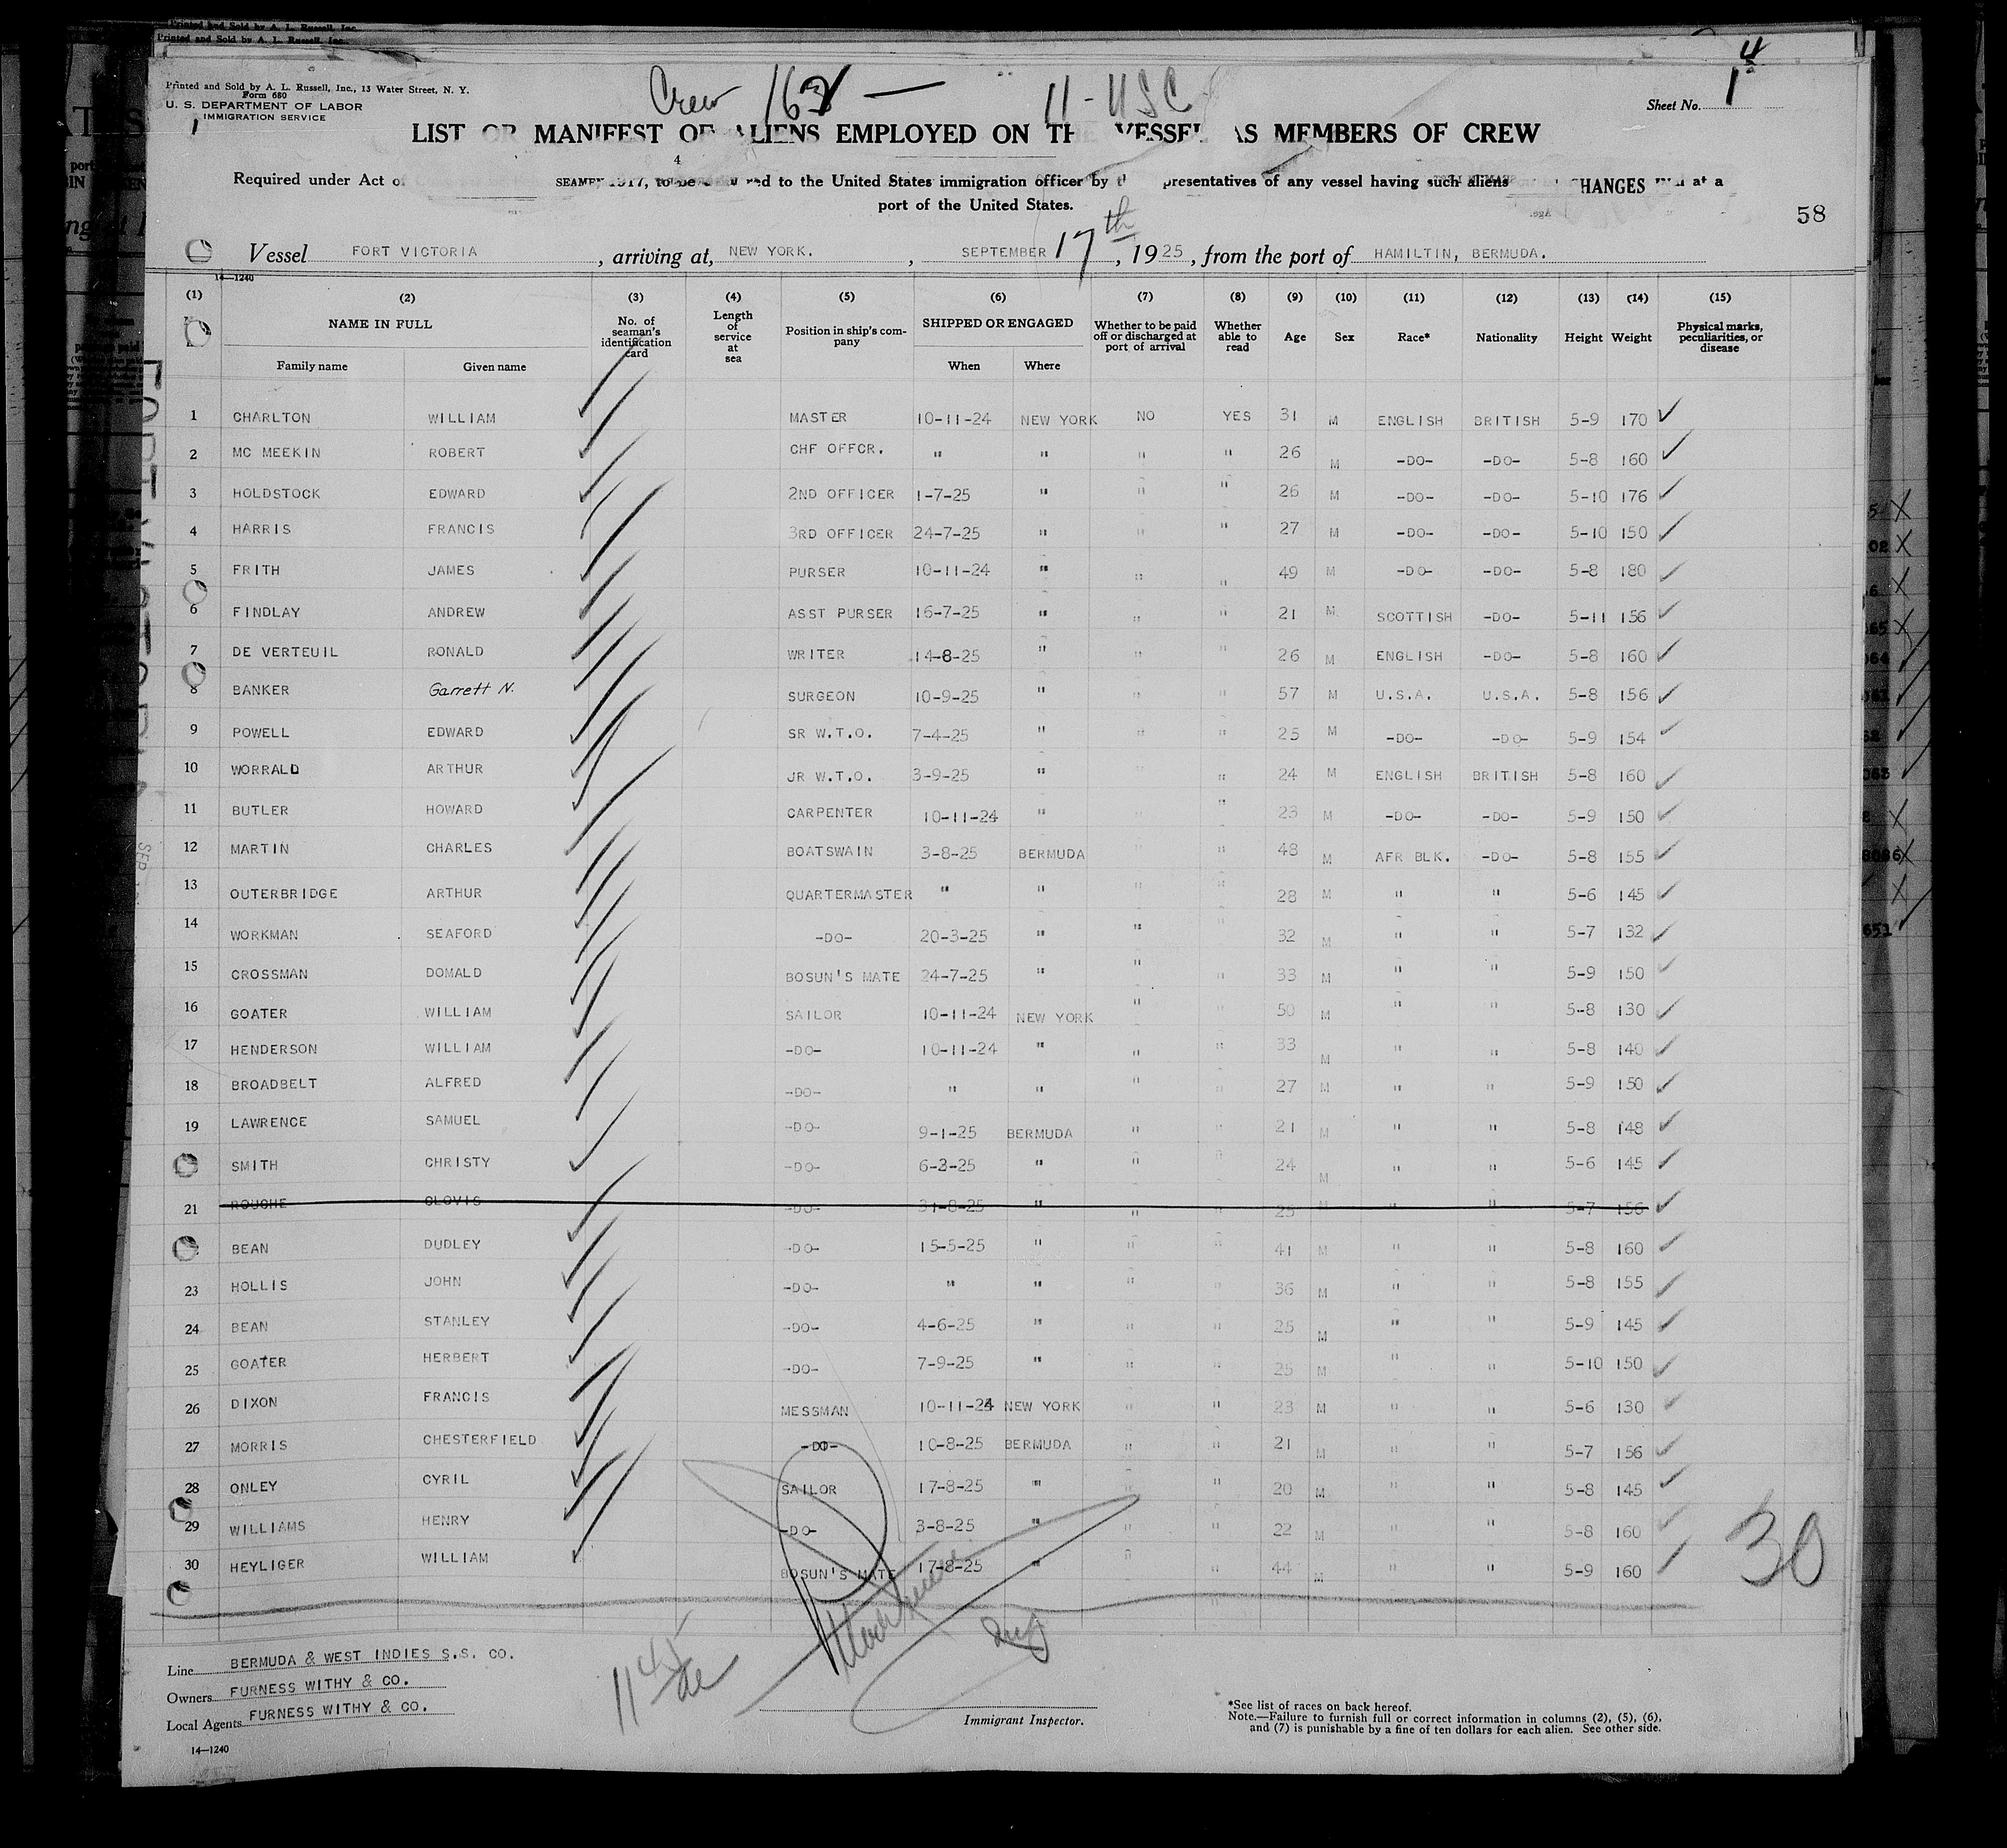 Printed and Sold by A. L. Russell, Inc.
Printed and Sold by A. L. Russell, Inc.
Printed and Sold by A. L. Russell, Inc., 13 Water Street, N. Y.
Form 680
U. S. DEPARTMENT OF LABOR
IMMIGRATION SERVICE
1
Crew 16 — 11 - USC
Sheet No. 1
LIST OR MANIFEST OF ALIENS EMPLOYED ON THE VESSEL AS MEMBERS OF CREW
Required under Act of SEAMEN 1917, to be to the United States immigration officer by presentatives of any vessel having such aliens CHANGES at a
port of the United States.
58
Vessel FORT VICTORIA, arriving at, NEW YORK., SEPTEMBER 17th, 1925, from the port of HAMILTIN, BERMUDA.
14—1240
(1) (2) (3) (4) (5) (6) (7) (8) (9) (10) (11) (12) (13) (14) (15)
NAME IN FULL Family name Given name
No. of seaman's identification card
Length of service at sea
Position in ship's company
SHIPPED OR ENGAGED When Where
Whether to be paid off or discharged at port of arrival
Whether able to read
Age Sex Race* Nationality Height Weight
Physical marks, peculiarities, or disease
1 CHARLTON WILLIAM MASTER 10-11-24 NEW YORK NO YES 31 M ENGLISH BRITISH 5-9 170
2 MC MEEKIN ROBERT CHF OFFCR. " " " " 26 M -DO- -DO- 5-8 160
3 HOLDSTOCK EDWARD 2ND OFFICER 1-7-25 " " " 26 M -DO- -DO- 5-10 176
4 HARRIS FRANCIS 3RD OFFICER 24-7-25 " " " 27 M -DO- -DO- 5-10 150
5 FRITH JAMES PURSER 10-11-24 " " " 49 M -DO- -DO- 5-8 180
6 FINDLAY ANDREW ASST PURSER 16-7-25 " " " 21 M SCOTTISH -DO- 5-11 156
7 DE VERTEUIL RONALD WRITER 14-8-25 " " " 26 M ENGLISH -DO- 5-8 160
8 BANKER Garrett N. SURGEON 10-9-25 " " " 57 M U.S.A. U.S.A. 5-8 156
9 POWELL EDWARD SR W.T.O. 7-4-25 " " " 25 M -DO- -DO- 5-9 154
10 WORRALD ARTHUR JR W.T.O. 3-9-25 " " 24 M ENGLISH BRITISH 5-8 160
11 BUTLER HOWARD CARPENTER 10-11-24 " " 23 M -DO- -DO- 5-9 150
12 MARTIN CHARLES BOATSWAIN 3-8-25 BERMUDA " " 48 M AFR BLK. -DO- 5-8 155
13 OUTERBRIDGE ARTHUR QUARTERMASTER " " " " 28 M " " 5-6 145
14 WORKMAN SEAFORD -DO- 20-3-25 " " " 32 M " " 5-7 132
15 CROSSMAN DOMALD BOSUN'S MATE 24-7-25 " " " 33 M " " 5-9 150
16 GOATER WILLIAM SAILOR 10-11-24 NEW YORK " " 50 M " " 5-8 130
17 HENDERSON WILLIAM -DO- 10-11-24 " " " 33 M " " 5-8 140
18 BROADBELT ALFRED -DO- " " " " 27 M " " 5-9 150
19 LAWRENCE SAMUEL -DO- 9-1-25 BERMUDA " " 21 M " " 5-8 148
SMITH CHRISTY -DO- 6-2-25 " " " 24 M " " 5-6 145
21 ROUCHE CLOVIS -DO- 31-8-25 " " " 25 M " " 5-7 156
BEAN DUDLEY -DO- 15-5-25 " " " 41 M " " 5-8 160
23 HOLLIS JOHN -DO- " " " " 36 M " " 5-8 155
24 BEAN STANLEY -DO- 4-6-25 " " " 25 M " " 5-9 145
25 GOATER HERBERT -DO- 7-9-25 " " " 25 M " " 5-10 150
26 DIXON FRANCIS MESSMAN 10-11-24 NEW YORK " " 23 M " " 5-6 130
27 MORRIS CHESTERFIELD -DO- 10-8-25 BERMUDA " " 21 M " " 5-7 156
28 ONLEY CYRIL SAILOR 17-8-25 " " " 20 M " " 5-8 145
29 WILLIAMS HENRY -DO- 3-8-25 " " " 22 M " " 5-8 160
30 HEYLIGER WILLIAM BOSUN'S MATE 17-8-25 " " " 44 M " " 5-9 160
30
Line BERMUDA & WEST INDIES S.S. CO.
Owners FURNESS WITHY & CO.
Local Agents FURNESS WITHY & CO.
11 45
Immigrant Inspector.
*See list of races on back hereof.
Note.—Failure to furnish full or correct information in columns (2), (5), (6),
and (7) is punishable by a fine of ten dollars for each alien. See other side.
14—1240